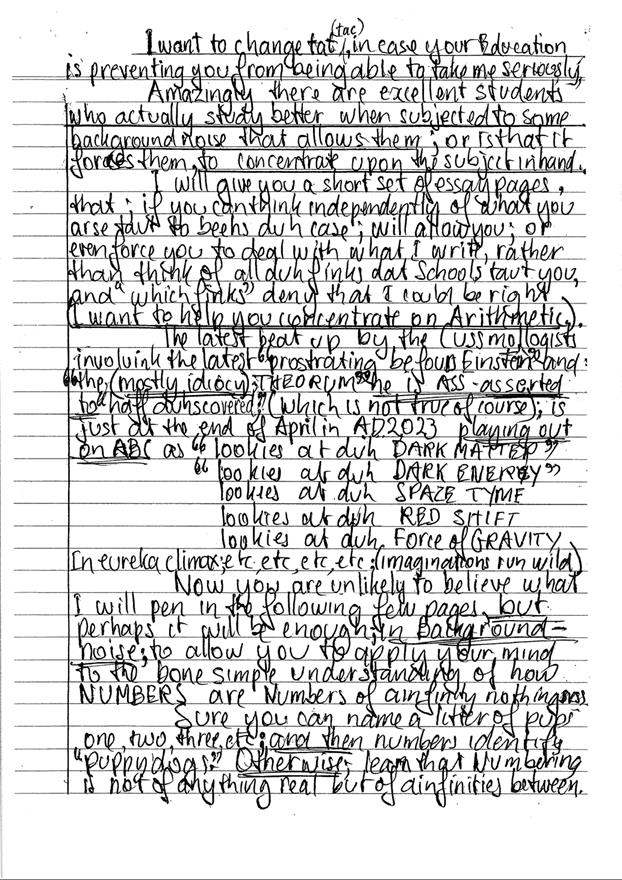 (tac)
I want to change tat/, in case your Education
is preventing you from being able to take me seriously,
Amazingly there are excellent students
who actually study better when subjected to some
background noise that allows them; or is that it
forces them, to concentrate upon the subject in hand.
I will give you a short set of essay pages,
that; if you can think independently of what you
arse taut to beehs duh case; will allow you; or
even force you to deal with what I write, rather
than think of all duh finks dat Schools taut you,
and "which finks" deny that I could be right
(I want to help you concentrate on Arithmetic.).
The latest beat up by the Cussmologists
involvink the latest "prostrating before Einstein" and:
"the (mostly idiocy); THEORUM" he is ASS-asserted
to "half duhscovered" (which is not true of course); is
just at the end of April in AD2023 playing out
on ABC as "lookies at duh DARK MATTER"
"lookies at duh DARK ENERGY"
lookies at duh SPAZE TYME
lookies at duh RED SHIFT
lookies at duh Force of GRAVITY
In eureka climax; etc, etc, etc, etc; (imaginations run wild)
Now you are unlikely to believe what
I will pen in the following few pages, but
perhaps it will be enough; in Background=
noise; to allow you to apply your mind
to the bone simple understanding of how
NUMBERS are Numbers of ainfinity nothingness
Sure you can name a litter of pups
one, two, three, etc; and then numbers identify
"puppydogs;" Otherwise; learn that Numbering
is not of anything real but of ainfinities between.